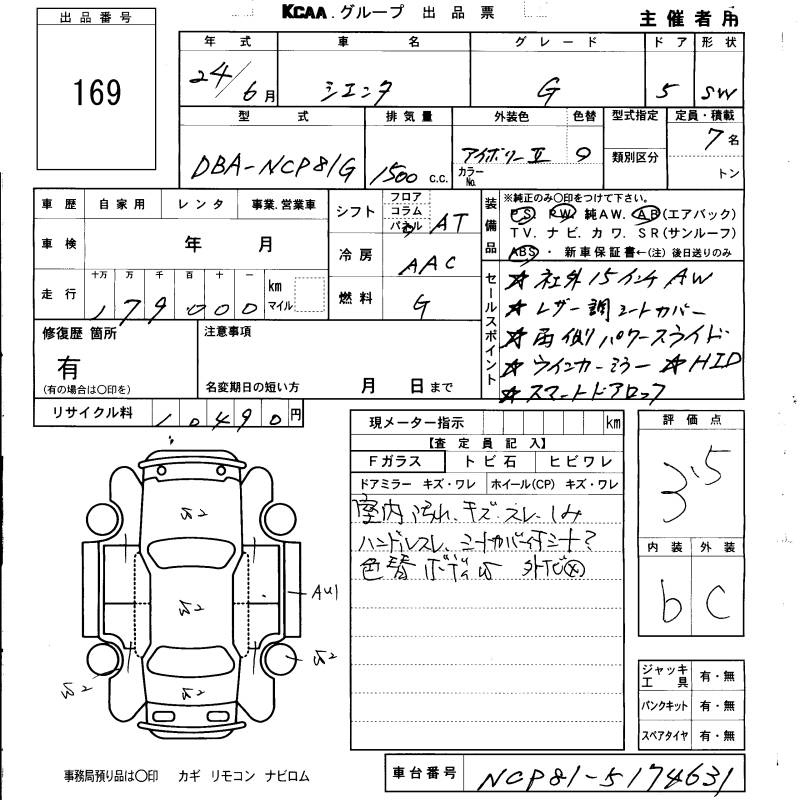 KCAA.グループ 出品票
主催者用
出品番号
169
年式 車名 グレード ドア 形状
24/6月 シエンタ G 5 SW
型式 排気量 外装色 色替 型式指定 定員・積載
DBA-NCP81G 1500 c.c. アイボリーII カラーNo. 9 類別区分 7名
トン
車歴 自家用 レンタ 事業.営業車
車検 年 月
走行 十万 万 千 百 十 一 km マイル
179000
シフト フロア コラム パネル AT
冷房 AAC
燃料 G
装備品
※純正のみ〇印をつけて下さい。
PS. PW. 純AW. AB(エアバック)
TV. ナビ. カワ. SR(サンルーフ)
ABS・ 新車保証書←(注) 後日送りのみ
セールスポイント
☆社外15インチAW
☆レザー調シートカバー
☆両側パワースライド
☆ウインカーミラー ☆HID
☆スマートドアロック
修復歴 箇所
有
(有の場合は〇印を)
注意事項
名変期日の短い方 月 日まで
リサイクル料 10490円
現メーター指示 km
【査定員記入】
Fガラス トビ石 ヒビワレ
ドアミラー キズ・ワレ ホイール(CP) キズ・ワレ
室内汚れ、キズ・スレ、しみ
ハンドルスレ、シートカバー付シート?
色替ボディ
評価点
3.5
内装 外装
b C
AU1
ジャッキ工具 有・無
パンクキット 有・無
スペアタイヤ 有・無
事務局預り品は〇印 カギ リモコン ナビロム
車台番号 NCP81-5174631